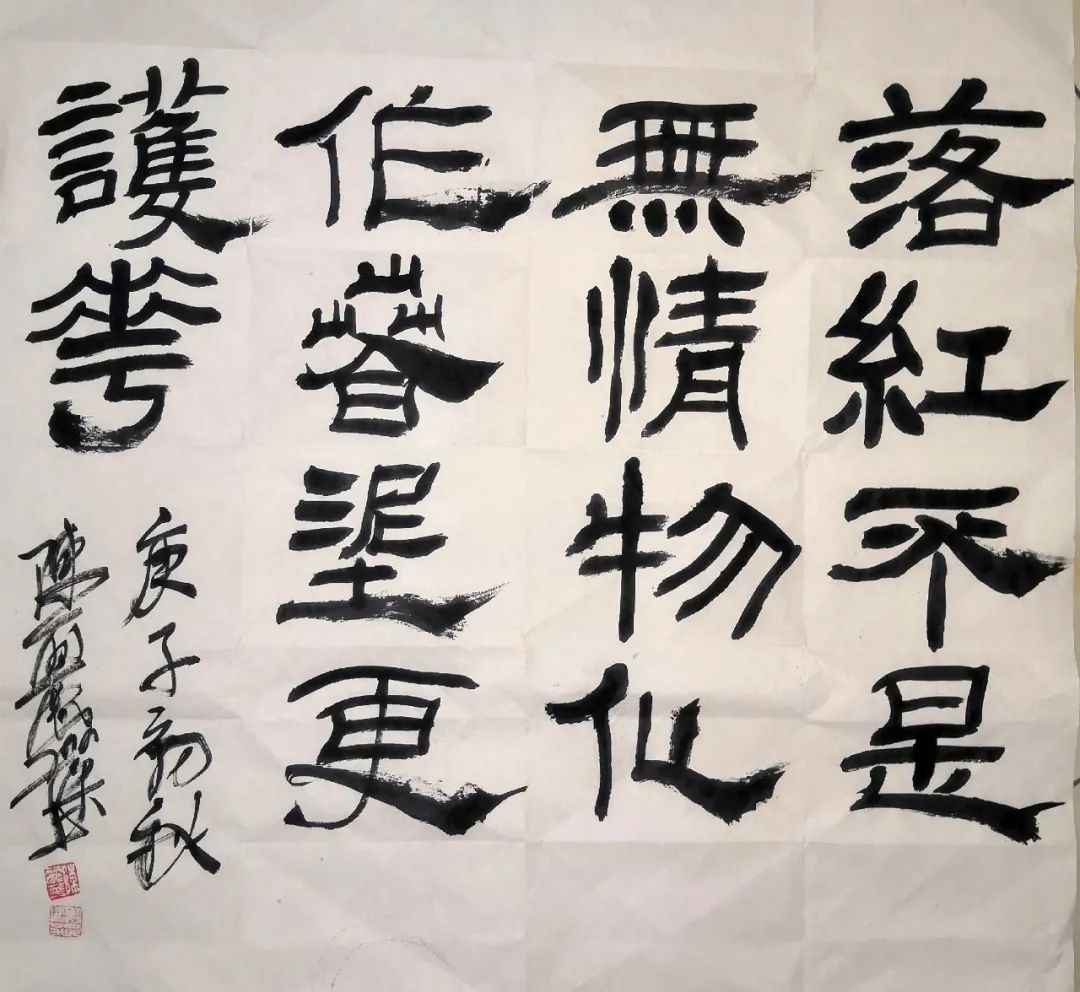 落紅不是
無情物化
作春埿更
護華
庚子初秋
陳